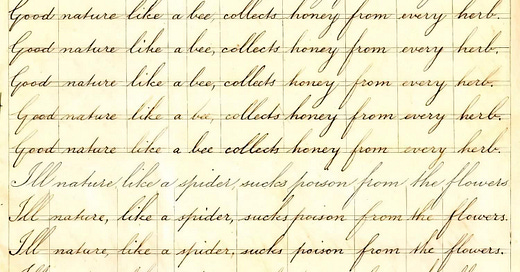 Good nature like a bee, collects honey from every herb.
Good nature like a bee, collects honey from every herb.
Good nature like a bee, collects honey from every herb.
Good nature like a bee, collects honey from every herb.
Good nature like a bee collects honey from every herb.
Ill nature, like a spider, sucks poison from the flowers
Ill nature, like a spider, sucks poison from the flowers.
Ill nature, like a spider, sucks poison from the flowers.